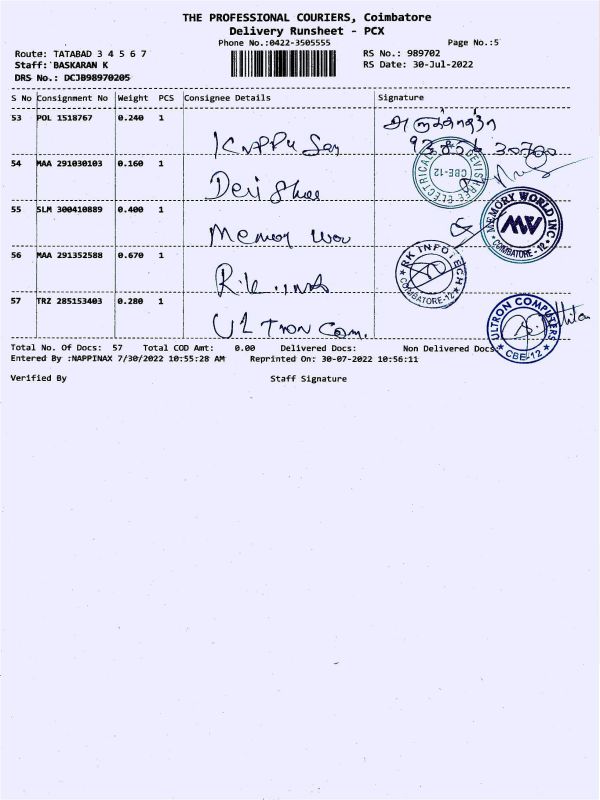 THE PROFESSIONAL COURIERS, Coimbatore
Delivery Runsheet - PCX
Phone No.:0422-3505555
Page No.:5
Route: TATABAD 3 4 5 6 7
RS No.: 989702
Staff: BASKARAN K
RS Date: 30-Jul-2022
DRS No.: DCJB98970205
S No Consignment No Weight PCS Consignee Details Signature
53 POL 1518767 0.240 1
54 MAA 291030103 0.160 1 Devi Shree
DEVISHREE ELECTRICALS CBE-12
55 SLM 300410889 0.400 1 Memory
MEMORY WORLD INC. MW COIMBATORE - 12
56 MAA 291352588 0.670 1
RK INFOTECH COIMBATORE-12
57 TRZ 285153403 0.280 1 Ultron Com.
ULTRON COMPUTERS CBE-12
Total No. Of Docs: 57 Total COD Amt: 0.00 Delivered Docs: Non Delivered Docs
Entered By :NAPPINAX 7/30/2022 10:55:28 AM Reprinted On: 30-07-2022 10:56:11
Verified By Staff Signature